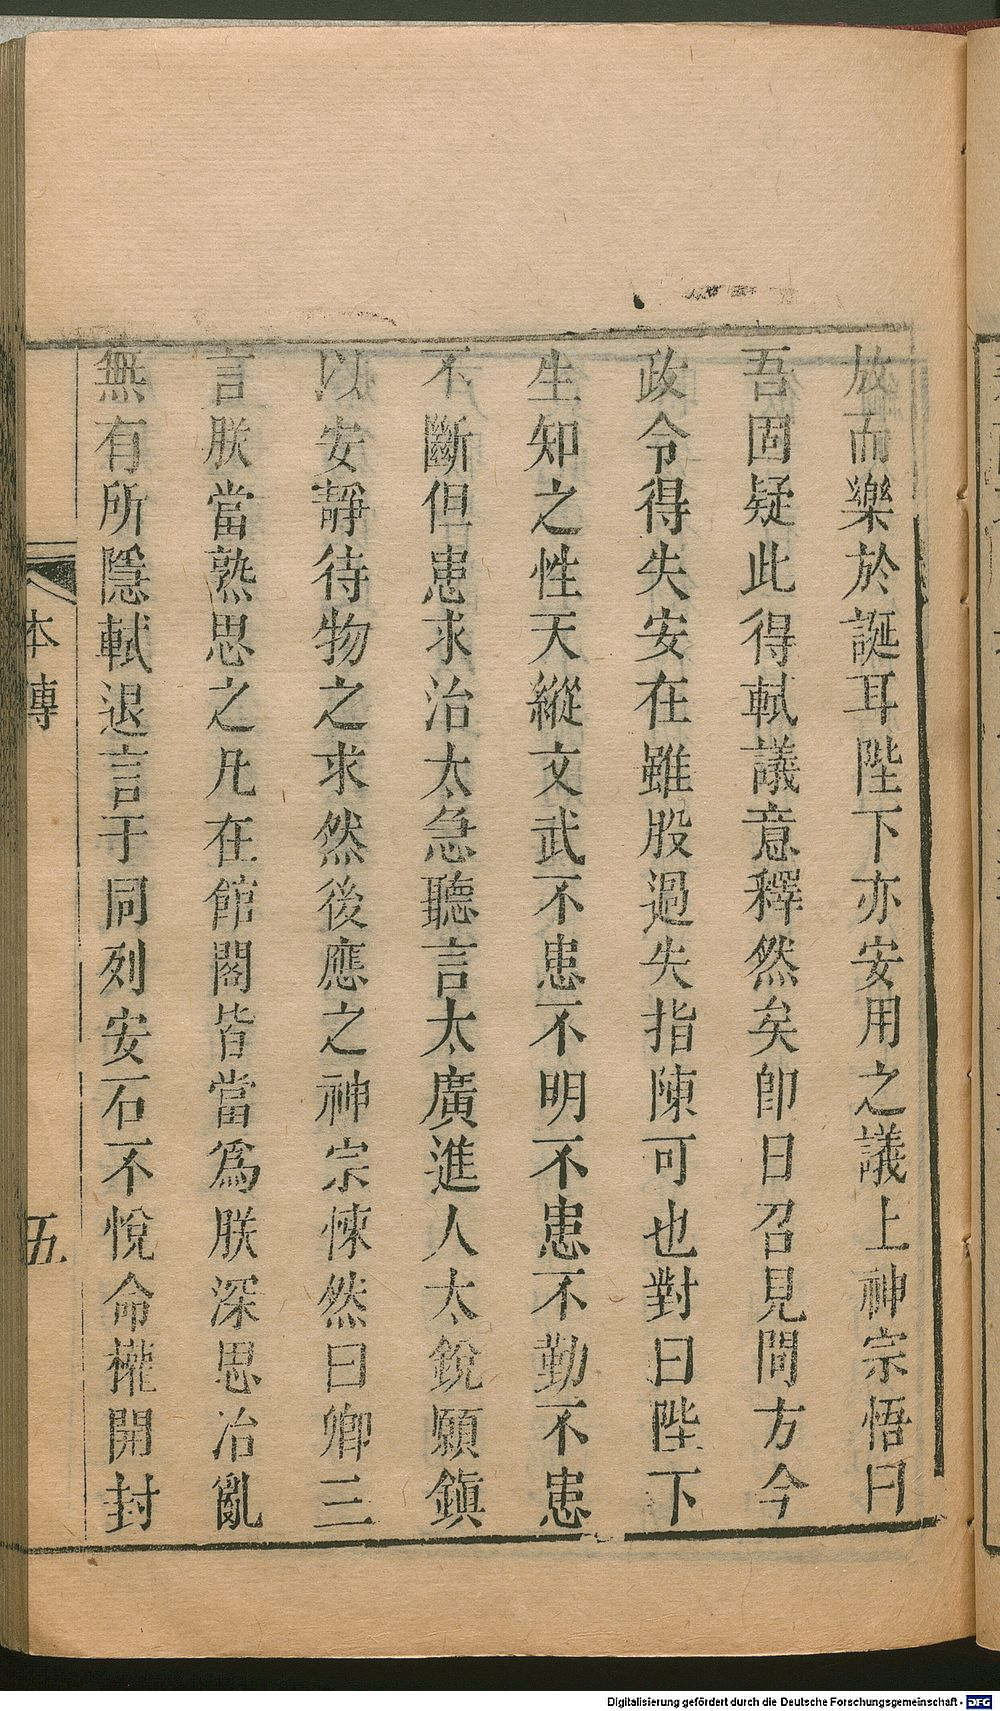 放而樂於誕耳陛下亦安用之議上神宗悟曰
吾固疑此得軾議意釋然矣卽日召見問方今
政令得失安在雖股過失指陳可也對曰陛下
生知之性天縱文武不患不明不患不勤不患
不斷但患求治太急聽言太廣進人太銳願鎮
以安靜待物之求然後應之神宗悚然曰卿三
言朕當熟思之凡在館閣皆當爲朕深思治亂
無有所隱軾退言于同列安石不悅命權開封
本傳
五
Digitalisierung gefördert durch die Deutsche Forschungsgemeinschaft - DFG